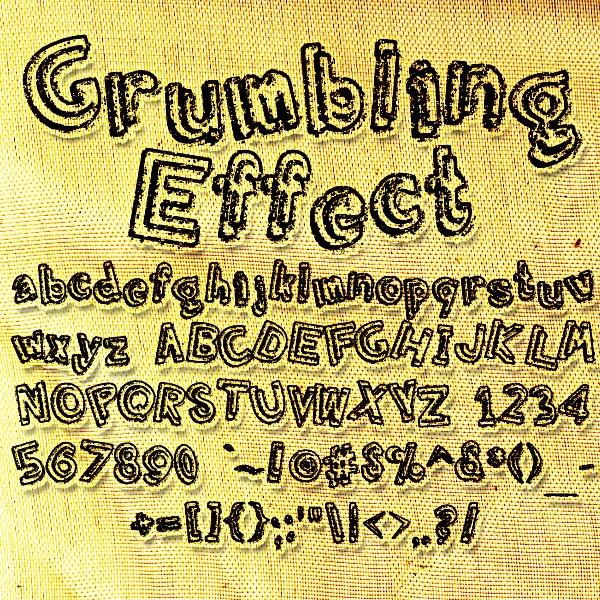 Grumbling
Effect
abcdefghijklmnopqrstuv
wxyz ABCDEFGHIJKLM
NOPQRSTUVWXYZ 1234
567890 `~!@#$%^&*()_-
+=[]{}:;'"\|<>,.?/